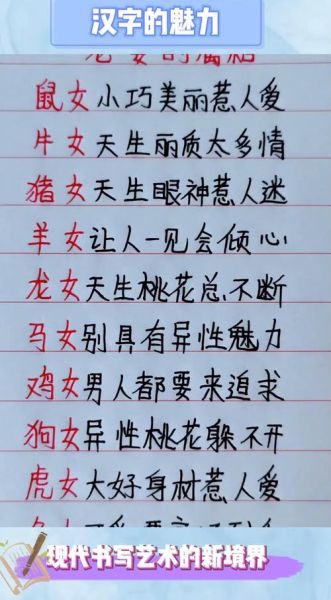 汉字的魅力
鼠女小巧美丽惹人爱
牛女天生丽质太多情
猪女天生眼神惹人迷
羊女让人一见会倾心
龙女天生桃花总不断
马女别具有异性魅力
鸡女男人都要来追求
狗女异性桃花躲不开
虎女大好身材惹人爱
现代书写艺术的新境界